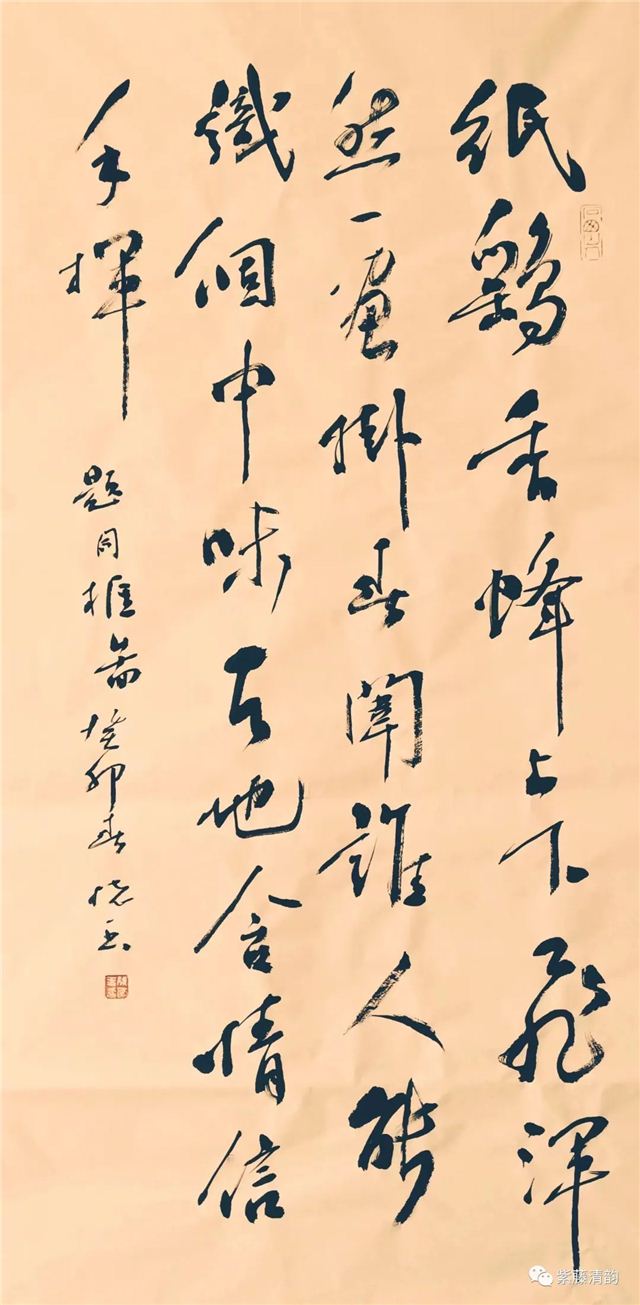 紙鷂香蜂上下飛渾
然一畫掛春闈誰人能
識個中味天地含情信
手揮
題同框圖 癸卯春
紫藤清韵